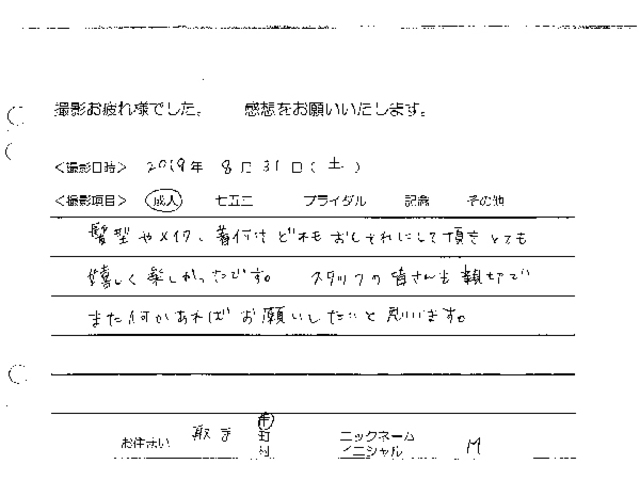 撮影お疲れ様でした。 感想をお願いいたします。
<撮影日時> 2019年 8月31日(土)
<撮影項目> 成人 七五三 ブライダル 記念 その他
髪型やメイク、着付けどれもおしゃれにして頂きとても
嬉しく楽しかったです。 スタッフの皆さんも親切で
また何かあればお願いしたいと思います。
お住まい 取手 市 町 村 ニックネーム イニシャル M